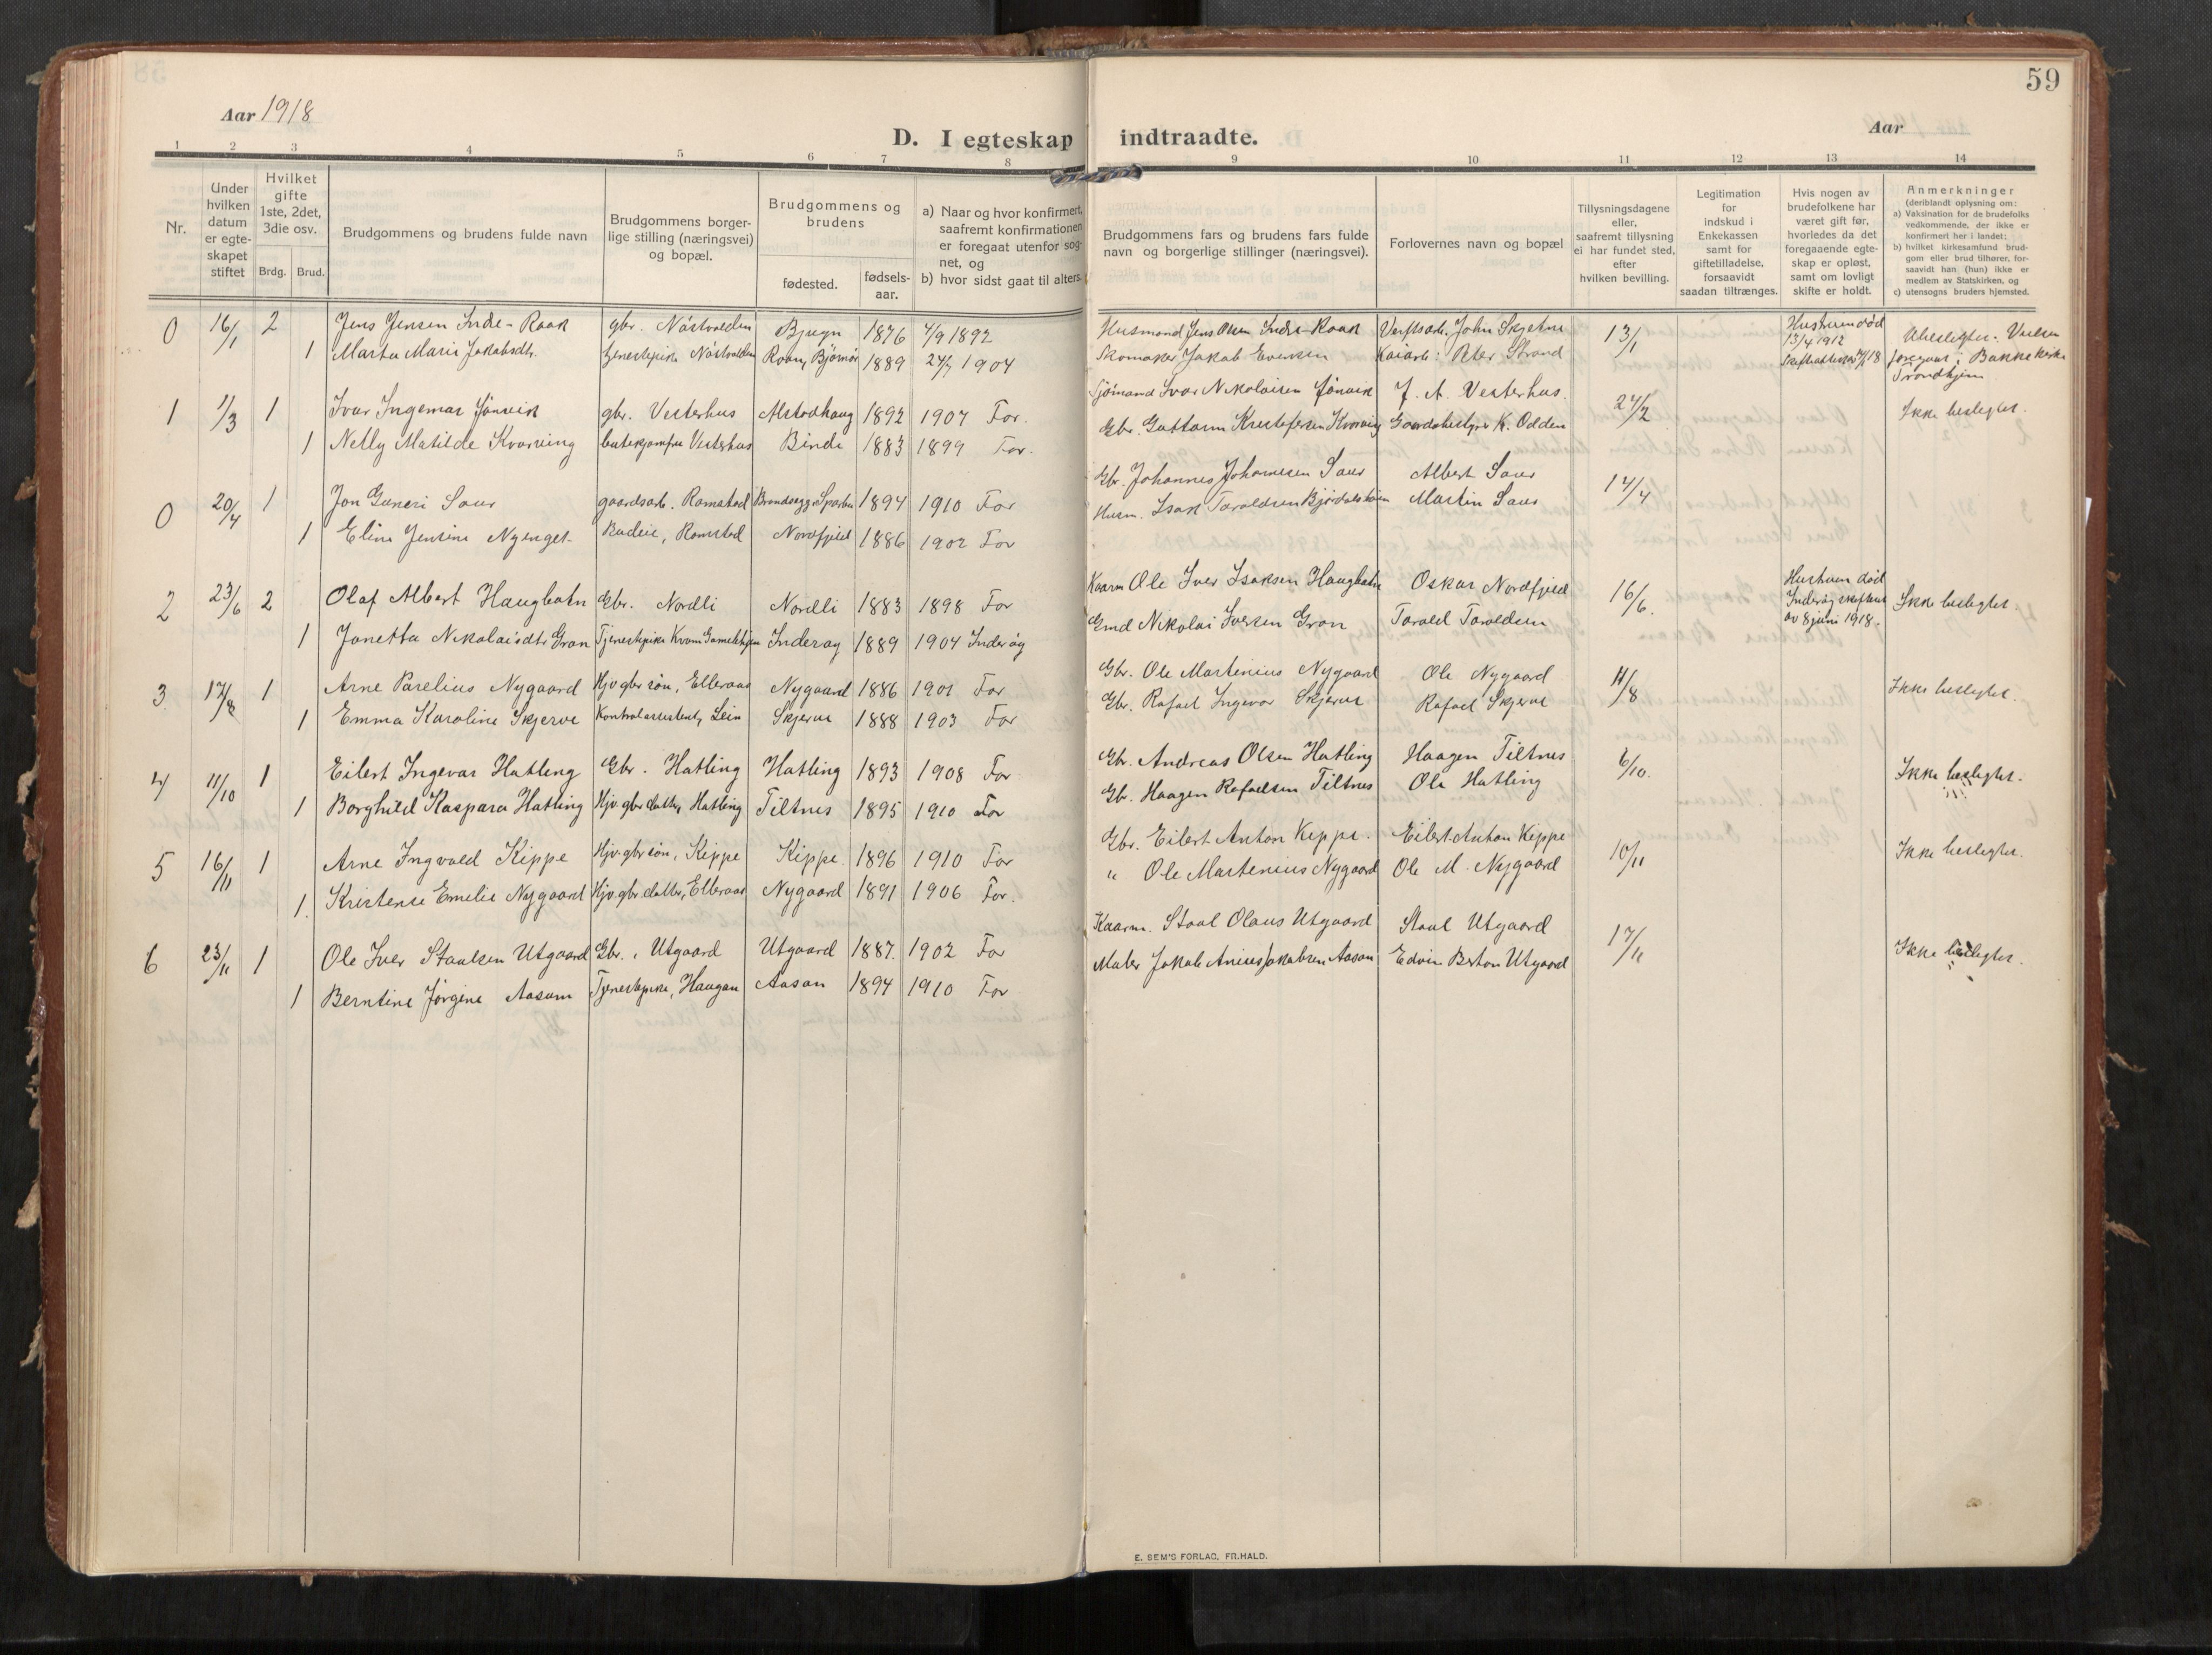 59
Aar 1918
Aar
D. I egteskap indtraadte.
1 2 3 4 5 6 7 8 9 10 11 12 13 14
Nr.
Under hvilken datum er egte-skapet stiftet
Hvilket gifte 1ste, 2det, 3die osv.
Brdg. Brud.
Brudgommens og brudens fulde navn
Brudgommens borger-lige stilling (næringsvei) og bopæl.
Brudgommens og brudens
fødested.
fødsels-aar.
a) Naar og hvor konfirmert, saafremt konfirmationen er foregaat utenfor sog-net, og
b) hvor sidst gaat til alters.
Brudgommens fars og brudens fars fulde navn og borgerlige stillinger (næringsvei).
Forlovernes navn og bopæl
Tillysningsdagene eller, saafremt tillysning ei har fundet sted, efter hvilken bevilling.
Legitimation for indskud i Enkekassen samt for giftetilladelse, forsaavidt saadan tiltrænges.
Hvis nogen av brudefolkene har været gift før, hvorledes da det foregaaende egte-skap er opløst, samt om lovligt skifte er holdt.
Anmerkninger
(deriblandt oplysning om:
a) Vaksination for de brudefolks vedkommende, der ikke er konfirmert her i landet;
b) hvilket kirkesamfund brud-gom eller brud tilhører, for-saavidt han (hun) ikke er medlem av Statskirken, og
c) utensogns bruders hjemsted.
0 16/1 2 Jens Jensen Indre-Raak gbr. Nöstvolden Bjugn 1876 4/9 1892 Husmand Jens Olsen Indre-Raak Verftsarb. John Skjetne 13/1 Hustruen död 13/4 1912 Ubeslegtet. Vielsen foregaat i Bakke kirke Trondhjem
1 Marta Marie Jakobsdt. tjenestepike Nöstvolden Roan, Bjørnør 1889 24/7 1904 Skomaker Jakob Evensen Kaiarb: Peter Strand
1 1/3 1 Ivar Ingemar Jönvik gbr. Vesterhus Alstadhaug 1892 1907 For. Sjömand Ivar Nikolaisen Jönvik J. A. Vesterhus. 24/2 Ikke beslegtet.
1 Nelly Matilde Kvorning butikjomfru Vesterhus Binde 1883 1899 For. Gbr. Guttorm Kristofersen Kvorning Gaardsbestyrer K. Odden
0 20/4 1 Jon Guneri Saur gaardsarb. Ramstad Brandsegg Sparbu 1894 1910 For Gbr. Johannes Johannesen Saur Albert Saur 14/4
1 Eline Jensine Nyenget Budeie, Ramstad Nordfjeld 1886 1902 For Husm. Isak Taraldsen Martin Saur
2 23/6 2 Olaf Albert Haugbotn Gbr. Nordli Nordli 1883 1898 For Kaarm Ole Iver Isaksen Haugbotn Oskar Nordfjeld 16/6. Hustruen död Inderøy skifteret av 8 juni 1918. Ikke beslegtet.
1 Janetta Nikolaisdt. Gran Tjenestepike Kvam Inderøy 1889 1904 Inderøy Gmd Nikolai Iversen Gran Tarald Taraldsen
3 17/8 1 Arne Parelius Nygaard Hjv gbr søn, Elleraas Nygaard 1886 1901 For Gbr. Ole Martinius Nygaard Ole Nygaard 11/8 Ikke beslegtet.
1 Emma Karoline Skjerve Kontrolassistent, Lein Skjerve 1888 1903 For Gbr. Rafael Ingevar Skjerve Rafael Skjerve
4 11/10 1 Eilert Ingevar Hatling Gbr. Hatling Hatling 1893 1908 For Gbr. Andreas Olsen Hatling Haagen Tiltnes 6/10. Ikke beslegtet.
1 Borghild Kaspara Hatling Hjv gbr datter, Hatling Tiltnes 1895 1910 For Gb. Haagen Rafaelsen Tiltnes Ole Hatling
5 16/11 1 Arne Ingvald Kippe Hjv. gbr søn, Kippe Kippe 1896 1910 For Gbr. Eilert Anton Kippe. Eilert Anton Kippe 10/11 Ikke beslegtet.
1. Kristense Emelie Nygaard Hjv gbr. datter, Elleraas Nygaard 1891 1906 For. " Ole Martenius Nygaard Ole M. Nygaard
6 23/11 1 Ole Iver Staalsen Utgaard Gbr., Utgaard Utgaard 1887. 1902 For Kaarm. Staal Olaus Utgaard Staal Utgaard 17/11 Ikke beslegtet.
1 Berntine Jørgine Aasum Tjenestepike, Haugan Aasan 1894 1910 For Maler Jakob Jakobsen Aasan Edvin Berton Utgaard
E. SEM'S FORLAG, FR.HALD.